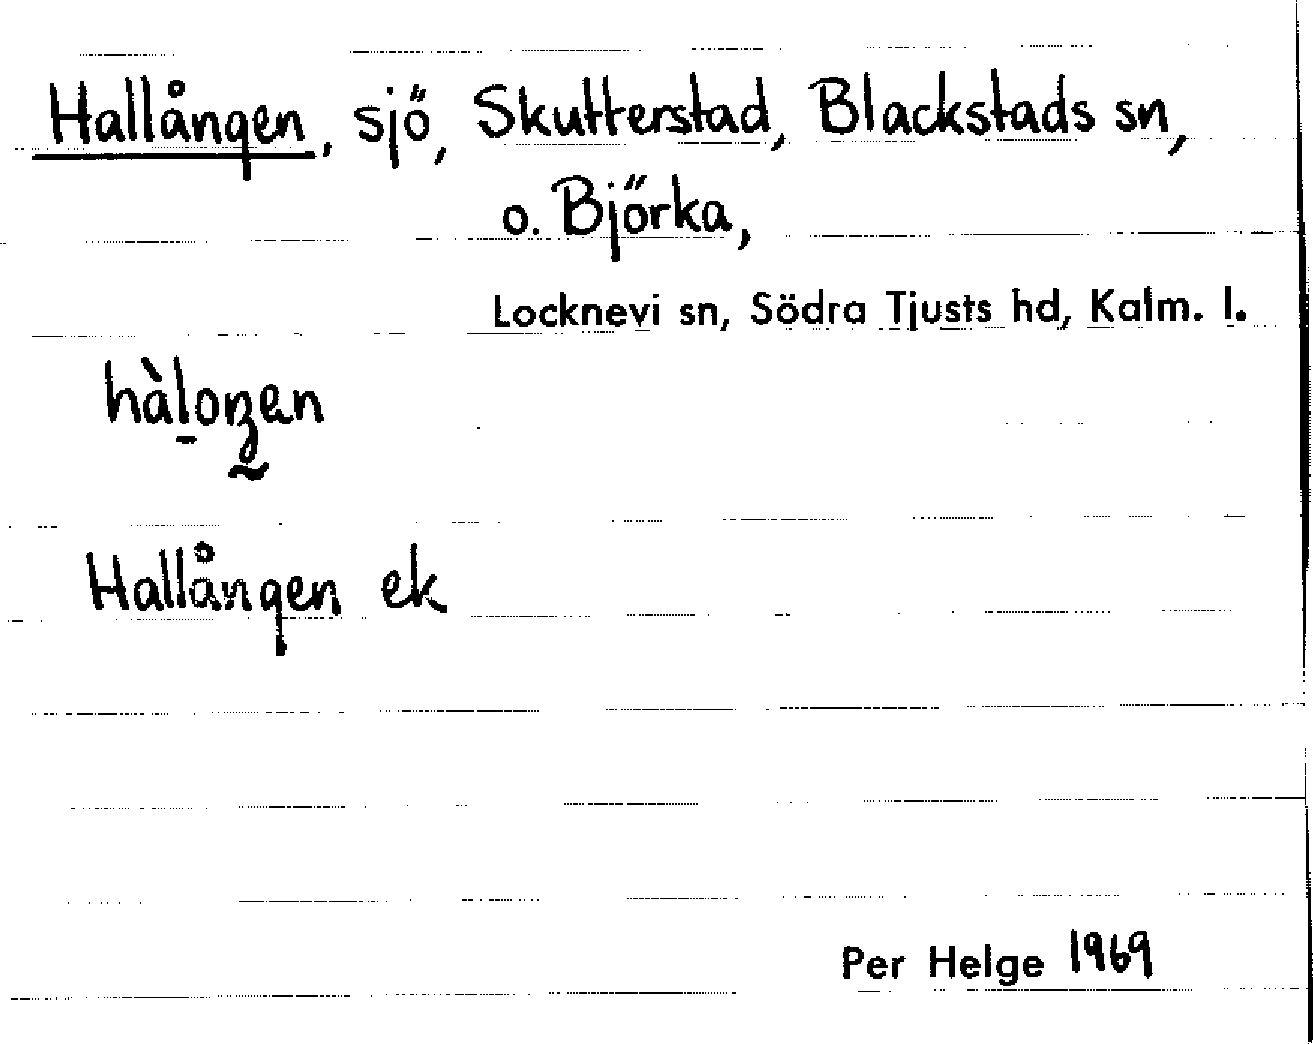 Hallången, sjö, Skutterstad, Blackstads sn,
o. Björka,
Locknevi sn, Södra Tjusts hd, Kalm. l.
Hallången ek
Per Helge 1969